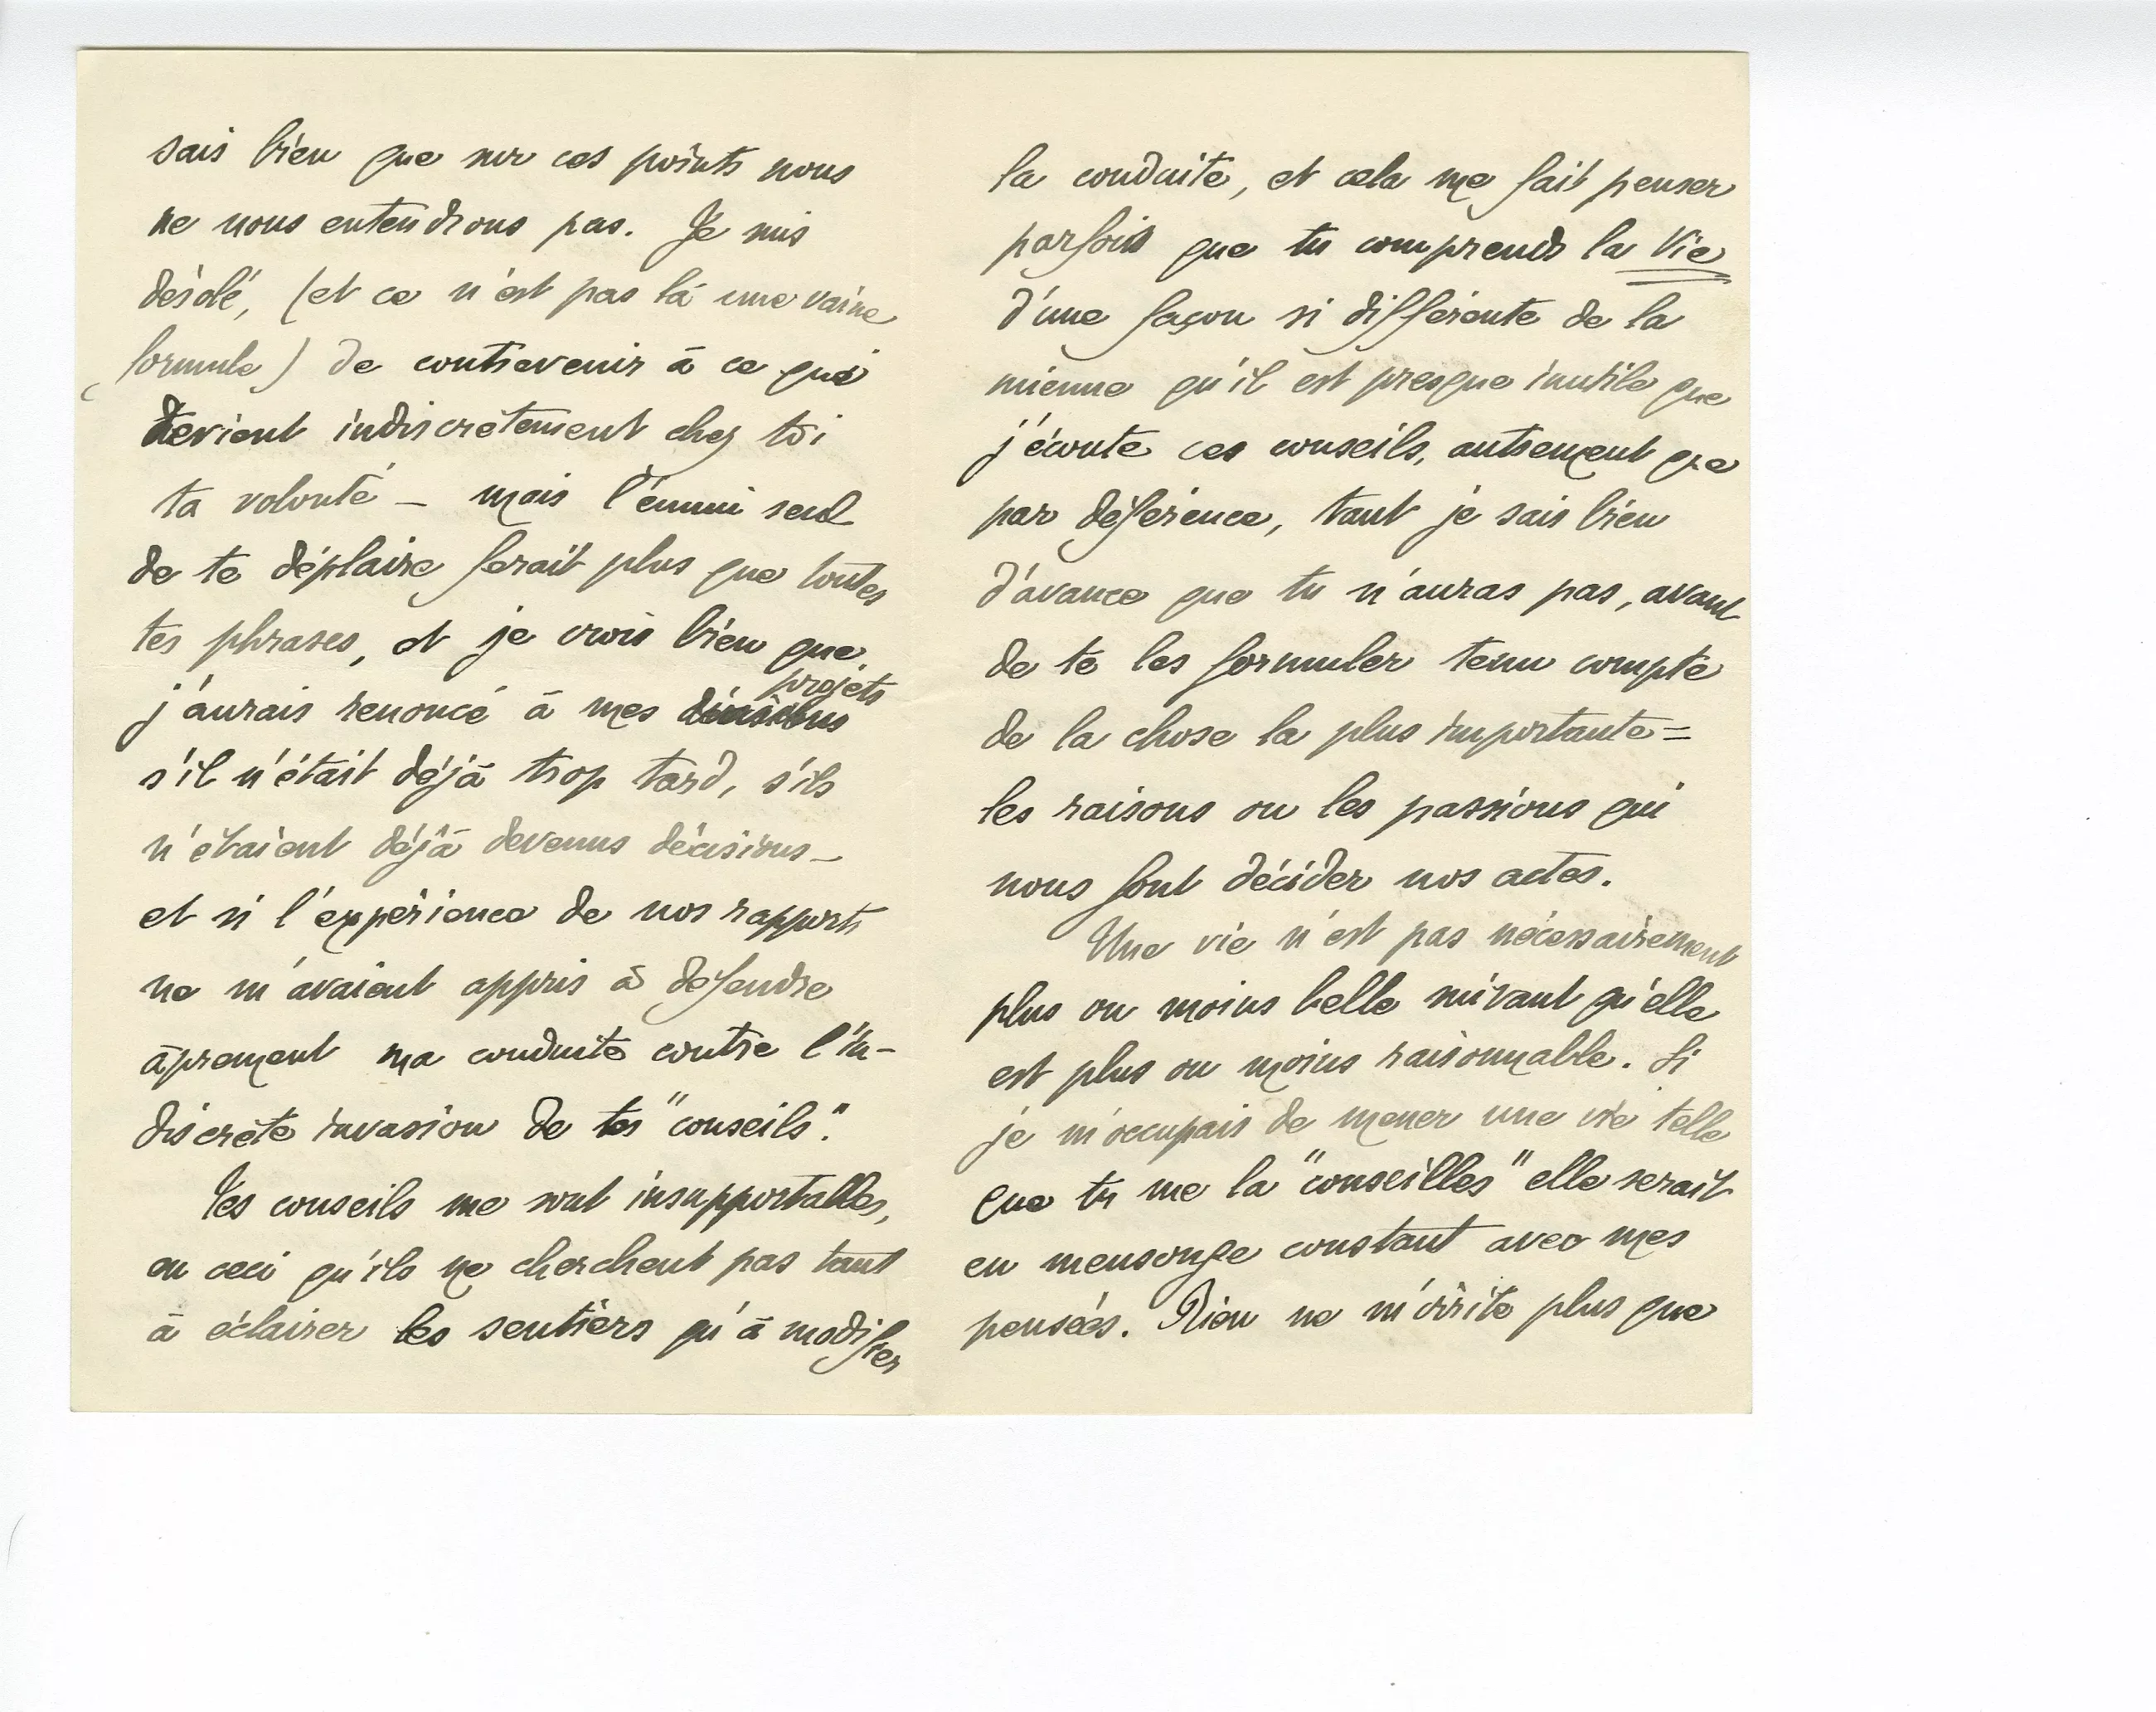 sais bien que sur ces points nous
ne nous entendrons pas. Je suis
désolé, (et ce n'est pas là une vaine
formule) de contrevenir à ce qui
devient indiscrètement chez toi
ta volonté – mais l'ennui seul
de te déplaire ferait plus que toutes
tes phrases, et je crois bien que
projets
j'aurais renoncé à mes décisions
s'il n'était déjà trop tard, s'ils
n'étaient déjà devenus décisions –
et si l'expérience de nos rapports
ne m'avaient appris à défendre
âprement ma conduite contre l'in-
discrète invasion de tes "conseils".
Tes conseils me sont insupportables,
en ceci qu'ils ne cherchent pas tant
à éclairer les sentiers qu'à modifier
la conduite, et cela me fait penser
parfois que tu comprends la Vie
d'une façon si différente de la
mienne qu'il est presque inutile que
j'écoute ces conseils, autrement que
par déférence, tant je sais bien
d'avance que tu n'auras pas, avant
de te les formuler tenu compte
de la chose la plus importante =
les raisons ou les passions qui
nous font décider nos actes.
Une vie n'est pas nécessairement
plus ou moins belle suivant qu'elle
est plus ou moins raisonnable. Si
je m'occupais de mener une vie telle
que tu me la "conseilles" elle serait
en mensonge constant avec mes
pensées. Rien ne m'irrite plus que